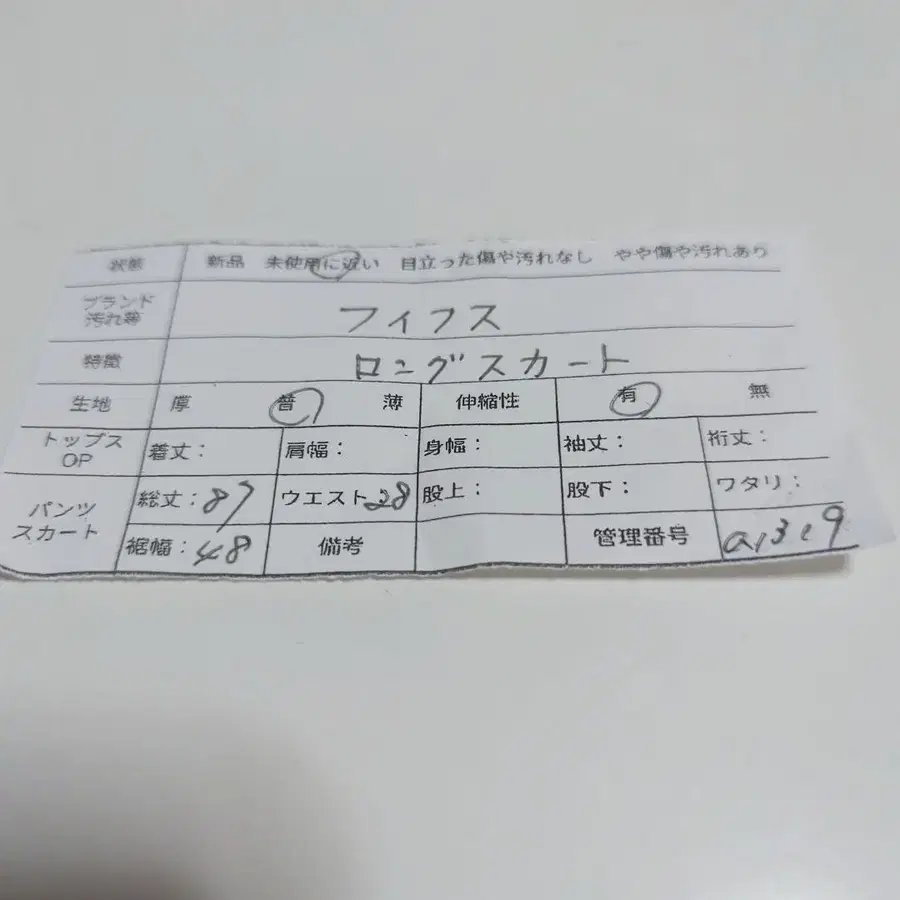 状態 新品 未使用に近い 目立った傷や汚れなし やや傷や汚れあり
ブランド
汚れ等 フィフス
特徴 ロングスカート
生地 厚 普 薄 伸縮性 有 無
トップス
OP 着丈: 肩幅: 身幅: 袖丈: 裄丈:
パンツ
スカート 総丈:87 ウエスト28 股上: 股下: ワタリ:
裾幅:48 備考 管理番号